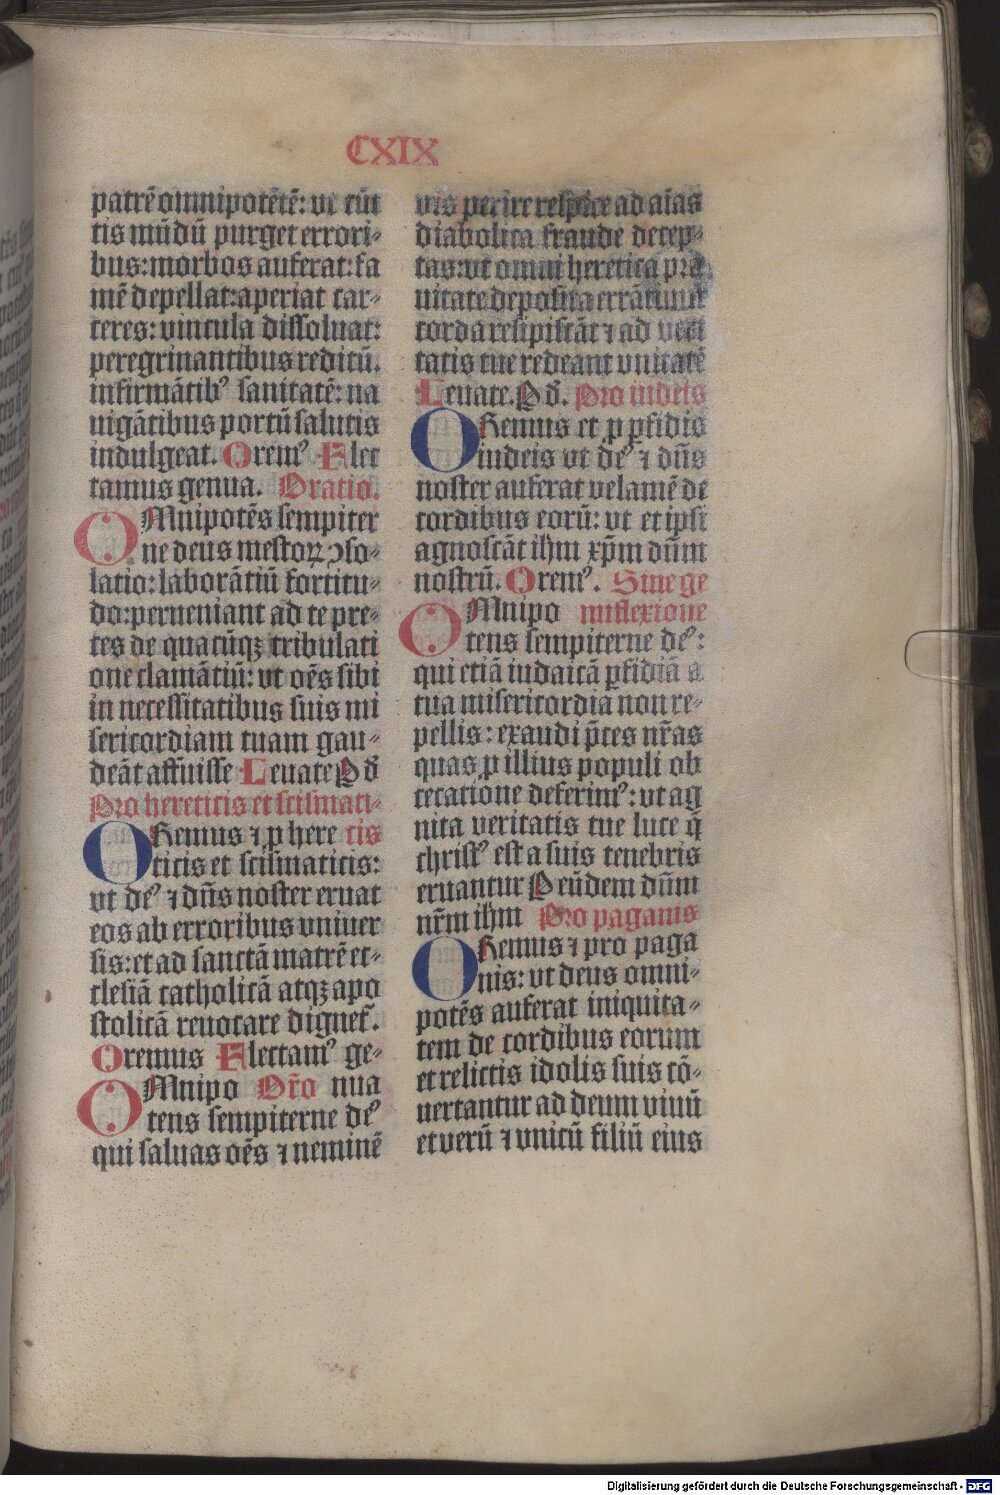 CXIX
patrē omnipotētē: vt cūc
tis mūdū purget errori⸗
bus: morbos auferat: fa
mē depellat: aperiat car⸗
ceres: vincula dissoluat:
peregrinantibus reditū.
infirmātibꝰ sanitatē: na
uigātibus portū salutis
indulgeat. Oremꝰ Flec
tamus genua. Oratio.
OMnipotēs sempiter
ne deus mestoꝝ ↄso⸗
latio: laborātiū fortitu⸗
do: perueniant ad te pre⸗
ces de quacūqꝫ tribulati
one clamātiū: vt oēs sibi
in necessitatibus suis mi
sericordiam tuam gau⸗
deāt affuisse Leuate Ꝑ d̄
Pro hereticis et scismati⸗
ORemus ⁊ ꝓ here cis
ticis et scismaticis:
vt deꝰ ⁊ dn̄s noster eruat
eos ab erroribus vniuer
sis: et ad sanctā matrē ec⸗
clesiā catholicā atqꝫ apo
stolicā reuocare dignet̄.
Oremus Flectamꝰ ge⸗
OMnipo Or̄o nua
tens sempiterne deꝰ
qui saluas oēs ⁊ neminē
vis perire respice ad aīas
diabolica fraude decep⸗
tas: vt omni heretica pra
uitate deposita errātium
corda resipiscāt ⁊ ad veri
tatis tue redeant vnitatē
Leuate. Ꝑ d̄. Pro iudeis
ORemus et ꝓ ꝑfidis
iudeis vt deꝰ ⁊ dn̄s
noster auferat velamē de
cordibus eorū: vt et ipsi
agnoscāt ihm̄ xp̄m dn̄m
nostrū. Oremꝰ. Sine ge
OMnipo nuflexione
tens sempiterne deꝰ:
qui etiā iudaicā ꝑfidiā a
tua misericordia non re⸗
pellis: exaudi p̄ces nr̄as
quas ꝓ illius populi ob
cecatione deferimꝰ: vt ag
nita veritatis tue luce q̄
christꝰ est a suis tenebris
eruantur Ꝑ eūdem dn̄m
nr̄m ihm̄ Pro paganis
ORemus ⁊ pro paga
nis: vt deus omni⸗
potēs auferat iniquita⸗
tem de cordibus eorum
et relictis idolis suis cō⸗
uertantur ad deum viuū
et verū ⁊ vnicū filiū eius
Digitalisierung gefördert durch die Deutsche Forschungsgemeinschaft - DFG